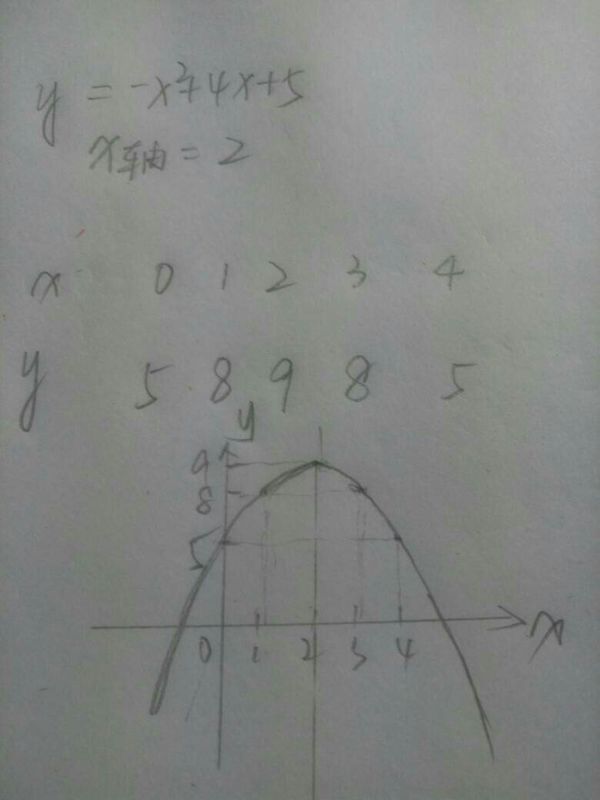 y = -x²+4x+5
x轴 = 2
x 0 1 2 3 4
y 5 8 9 8 5
y
9
8
5
0 1 2 3 4 x